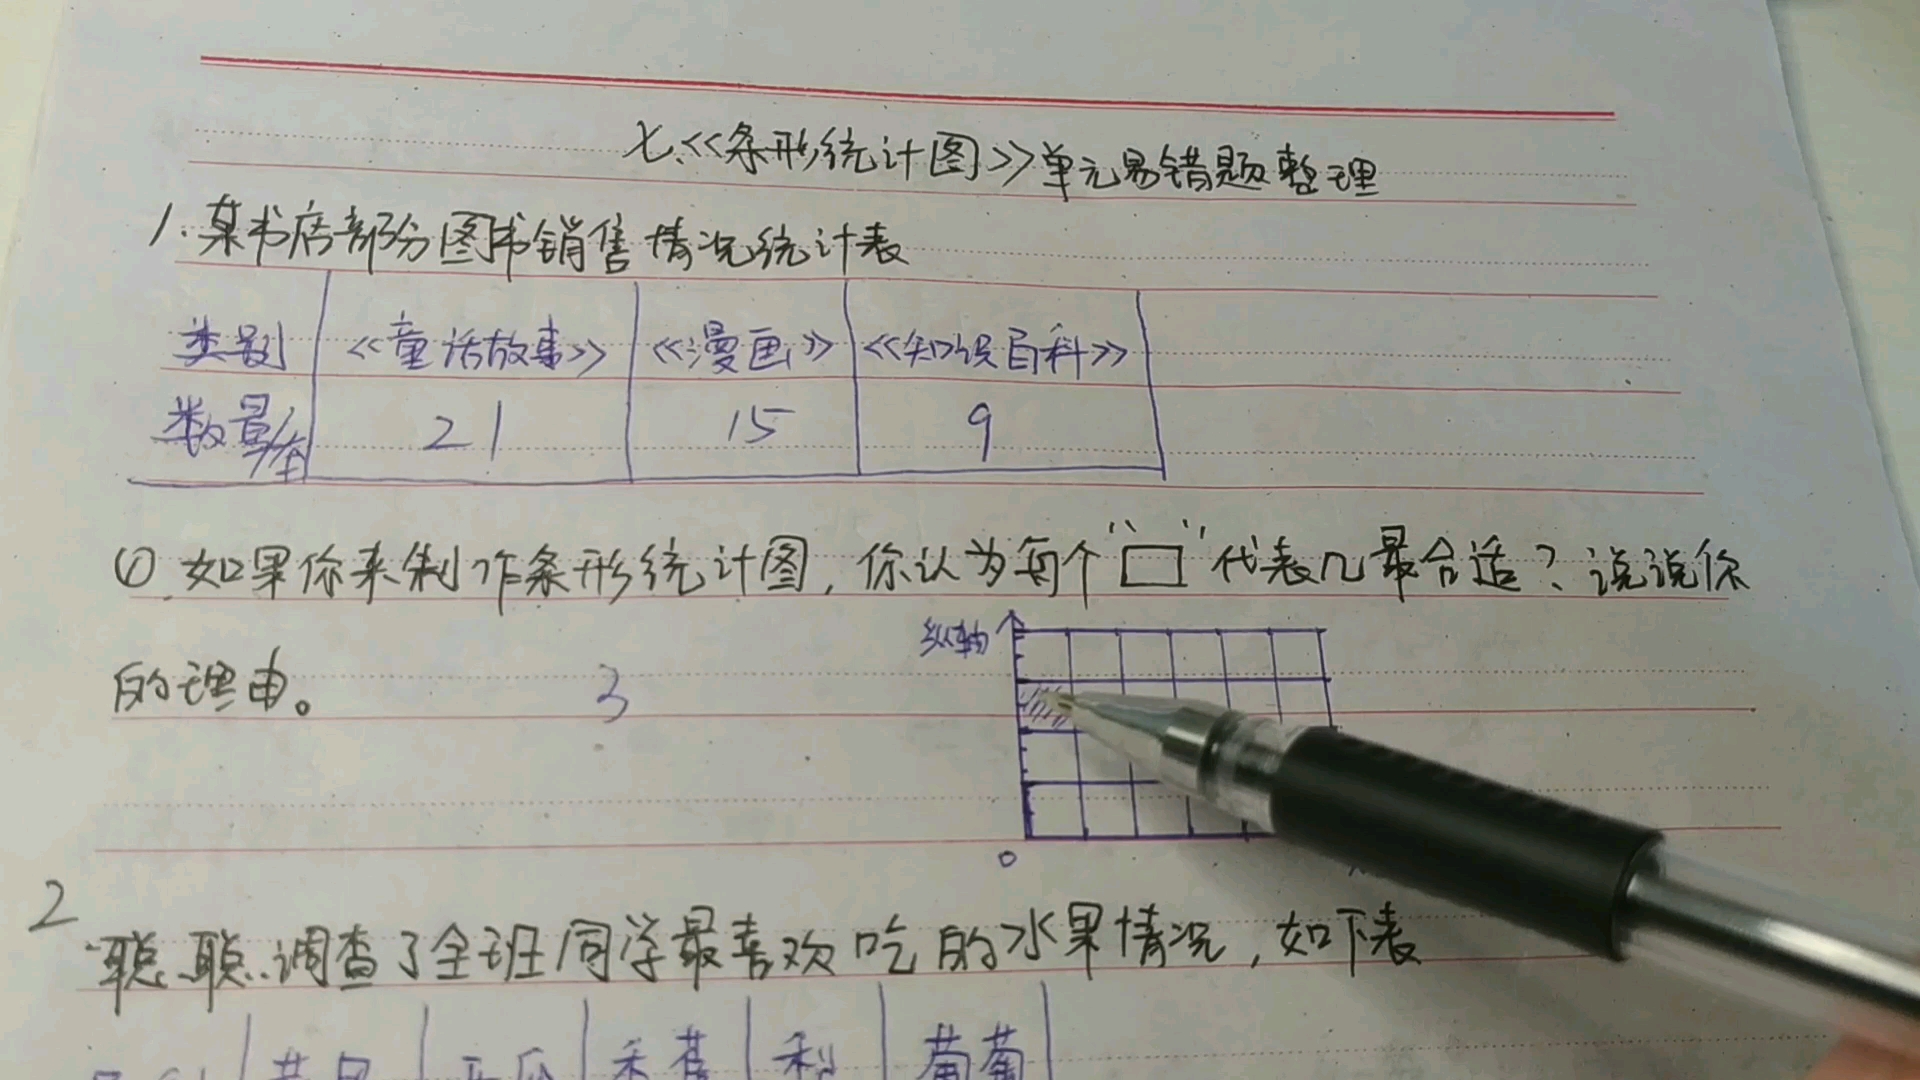 七、《条形统计图》单元易错题整理
1. 某书店部分图书销售情况统计表
类别 《童话故事》 《漫画》 《知识百科》
数量/本 21 15 9
① 如果你来制作条形统计图，你认为每个“□”代表几最合适？说说你
的理由。 3
纵轴
0
2 聪聪调查了全班同学最喜欢吃的水果情况，如下表
香蕉 梨 葡萄